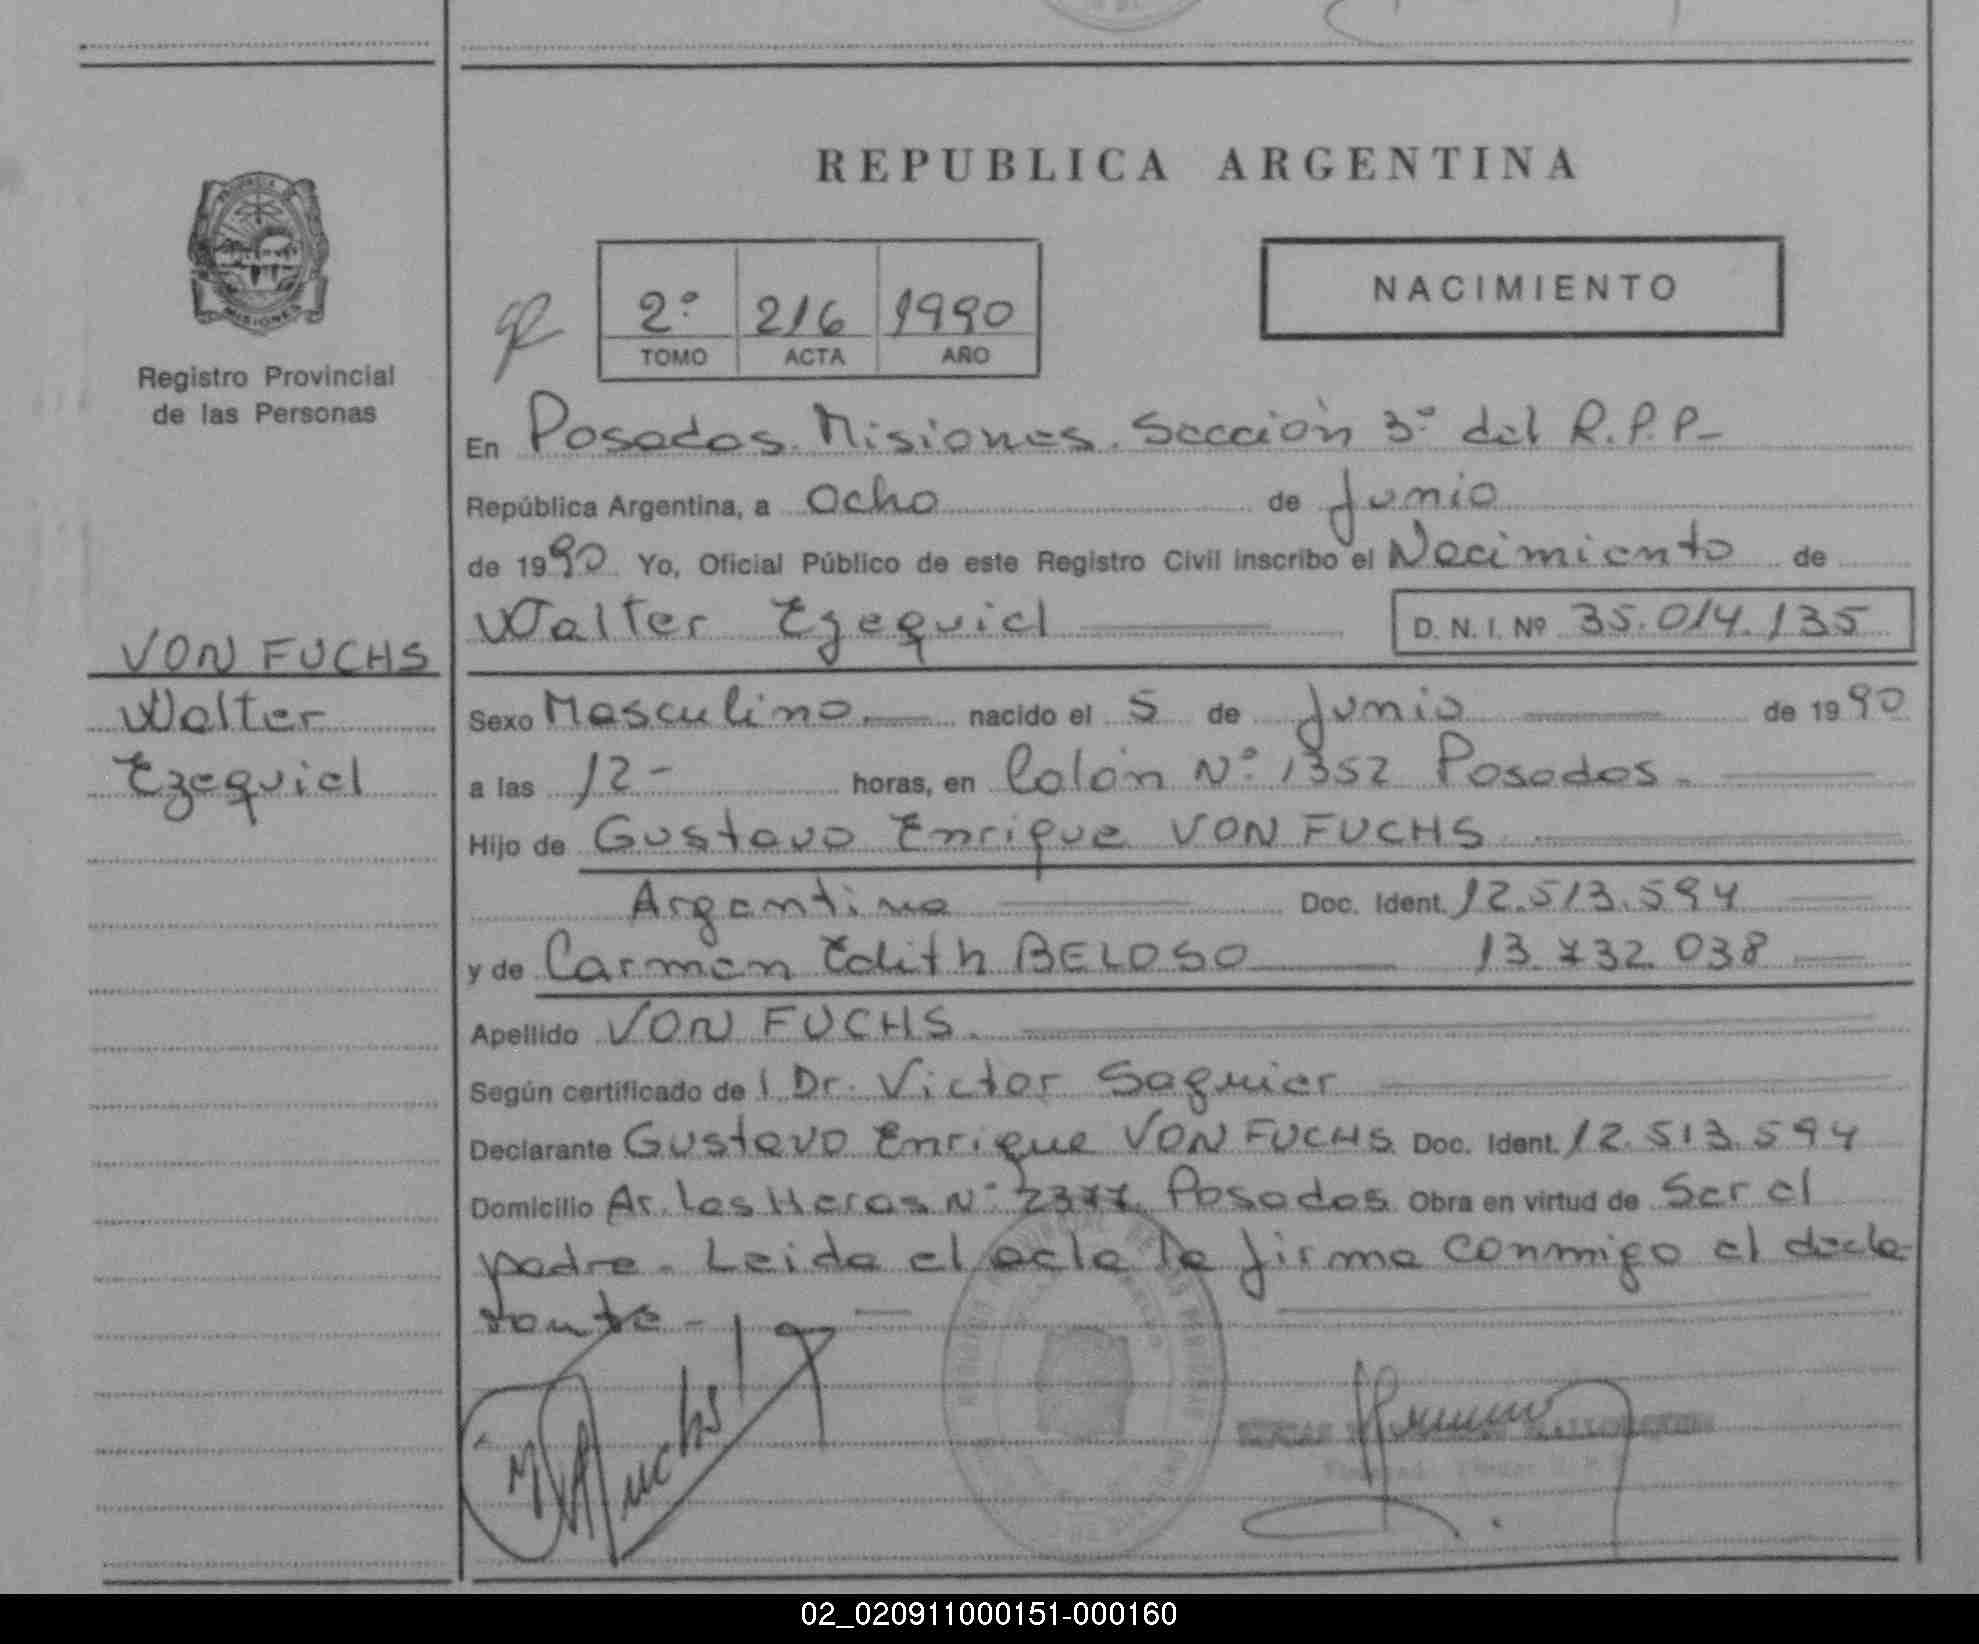 REPUBLICA ARGENTINA
PROVINCIA
MISIONES
Registro Provincial
de las Personas
2º 216 1990
TOMO ACTA AÑO
NACIMIENTO
En Posadas. Misiones. Sección 3º del R.P.P-
República Argentina, a Ocho de Junio
de 1990 Yo, Oficial Público de este Registro Civil inscribo el Nacimiento de
Walter Ezequiel D. N. I. Nº 35.014.135
VON FUCHS
Walter
Ezequiel
Sexo Masculino nacido el 5 de Junio de 1990
a las 12- horas, en Colón Nº 1352 Posadas-
Hijo de Gustavo Enrique VON FUCHS
Argentino Doc. Ident. 12.513.594
y de Carmen Edith BELOSO 13.732.038
Apellido VON FUCHS.
Según certificado del Dr. Victor Saguier
Declarante Gustavo Enrique VON FUCHS. Doc. Ident. 12.513.594
Domicilio Av. Las Heras Nº 2377 Posadas. Obra en virtud de Ser el
padre. Leida el acta la firma conmigo el decla-
rante-
02_020911000151-000160